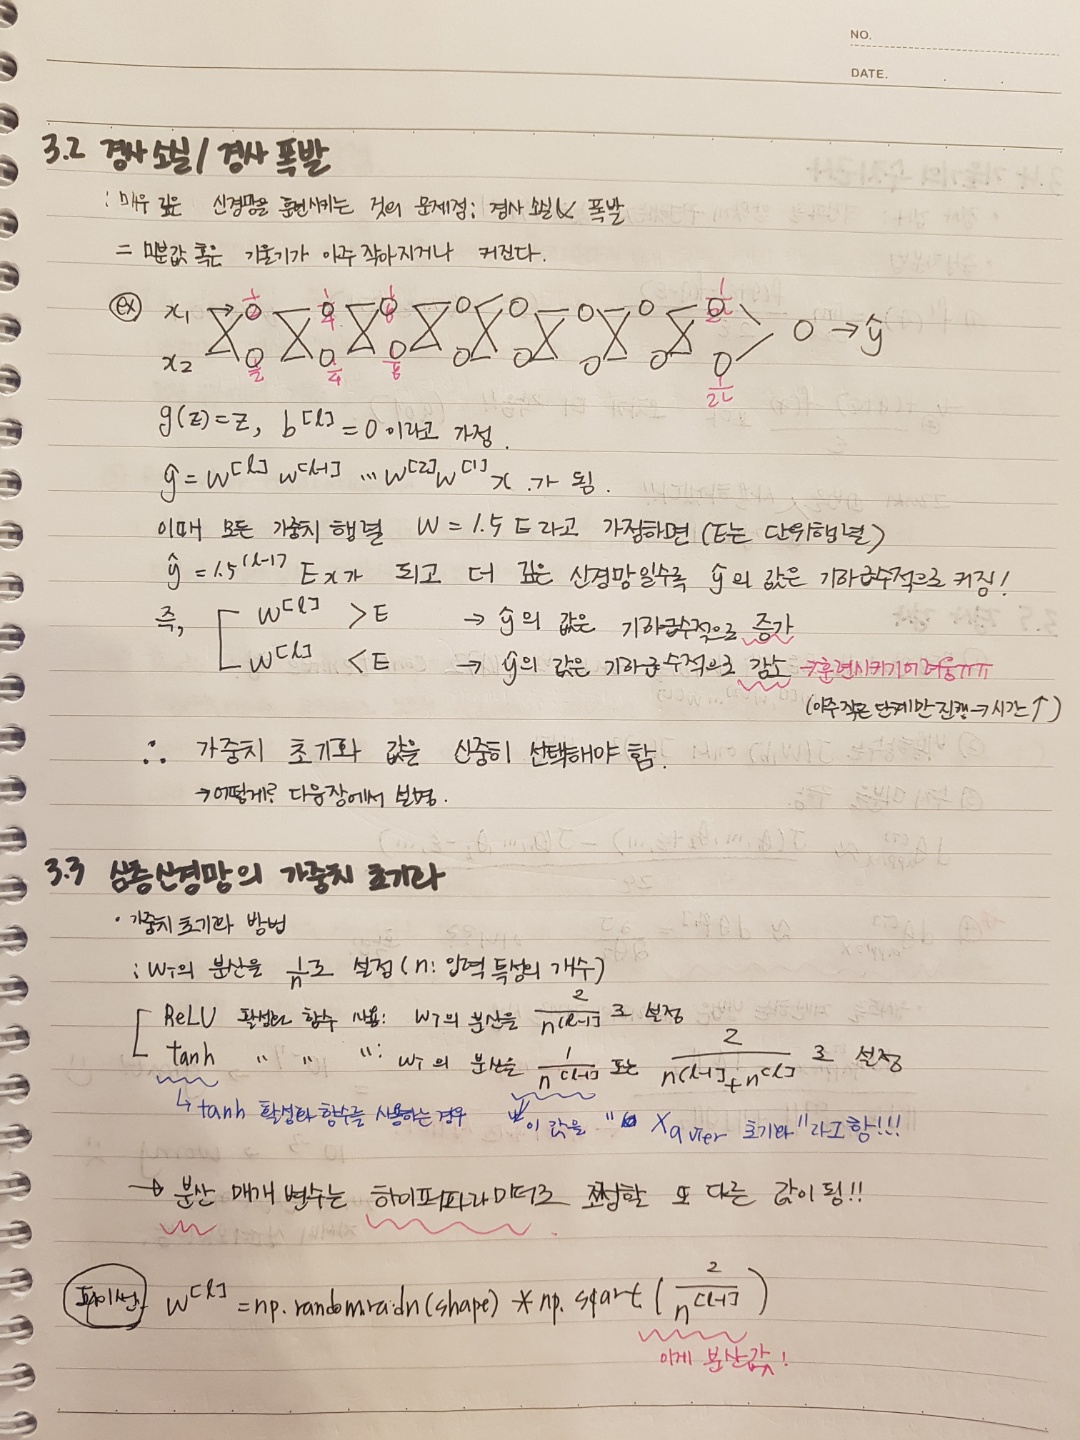 NO.
DATE.
3.2 경사 소실 / 경사 폭발
: 매우 깊은 신경망을 훈련시키는 것의 문제점: 경사 소실 & 폭발
= 미분값 혹은 기울기가 아주 작아지거나 커진다.
ex x1 1/2 1/4 1/8 1/2L
x2 1/2 1/4 1/8 1/2L → ŷ
g(z)=z, b^[l]=0 이라고 가정.
ŷ=w^[l] w^[l-1] ... w^[2] w^[1] x 가 됨.
이때 모든 가중치 행렬 W = 1.5 E 라고 가정하면 (E는 단위행렬)
ŷ = 1.5^(l-1) E x가 되고 더 깊은 신경망일수록 ŷ의 값은 기하급수적으로 커짐!
즉, w^[l] > E → ŷ의 값은 기하급수적으로 증가
w^[l] < E → ŷ의 값은 기하급수적으로 감소 → 훈련시키기 어려움ㅠㅠ
(아주 작은 단계만 진행 → 시간 ↑)
∴ 가중치 초기화 값을 신중히 선택해야 함.
→ 어떻게? 다음장에서 설명.
3.3 심층신경망의 가중치 초기화
· 가중치 초기화 방법
: wi의 분산을 1/n로 설정 (n: 입력 특성의 개수)
ReLU 활성화 함수 사용: wi의 분산을 2/n^[l-1]로 설정
tanh " " ": wi의 분산을 1/n^[l-1] 또는 2/(n^[l-1]+n^[l])로 설정
↳ tanh 활성화 함수를 사용하는 경우 이 값을 " Xavier 초기화"라고 함!!!
→ 분산 매개 변수는 하이퍼파라미터로 조정할 또 다른 값이 됨!!
파이썬 w^[l] = np.random.raidn(shape) * np.sqart (2/n^[l-1])
이게 분산값!